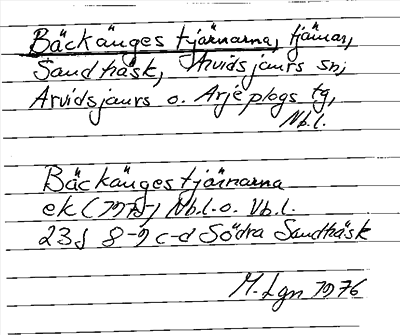 Bäckänges tjärnarna, tjärnar,
Sandträsk, Arvidsjaurs sn,
Arvidsjaurs o. Arjeplogs tg,
Nb.l.
Bäckängestjärnarna
ek (1975) Nb.l. o. Vb.l.
23J 8-9 c-d Södra Sandträsk
M. Lgn 1976